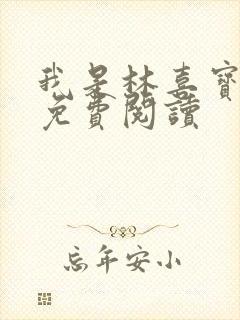 我是林喜寶
免費閱讀
忘年安小